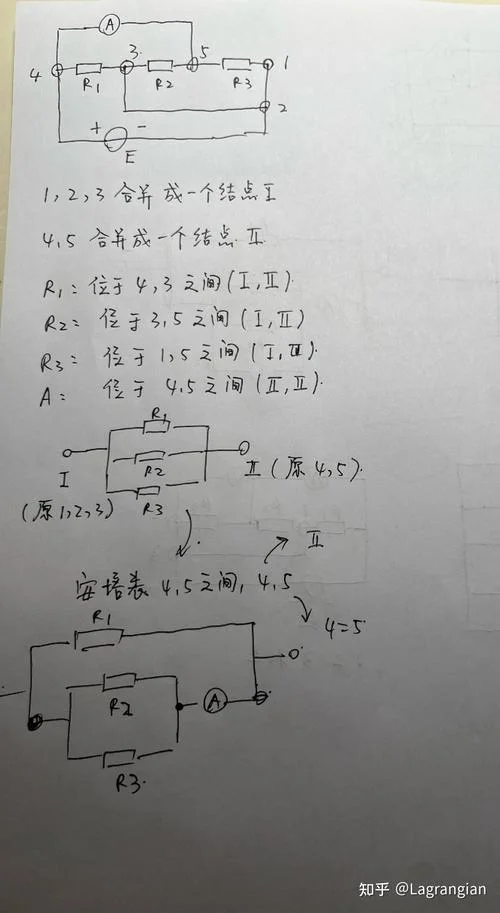 A
4 3 5 1
R1 R2 R3
2
+ -
E
1,2,3 合并成一个结点 I
4,5 合并成一个结点 II
R1: 位于 4,3 之间 (I, II)
R2: 位于 3,5 之间 (I, II)
R3: 位于 1,5 之间 (I, II).
A: 位于 4,5 之间 (II, II).
R1
R2
R3
I
II (原 4,5).
(原 1,2,3)
II
安培表 4,5 之间, 4,5
4=5
R1
R2
A
R3.
知乎 @Lagrangian